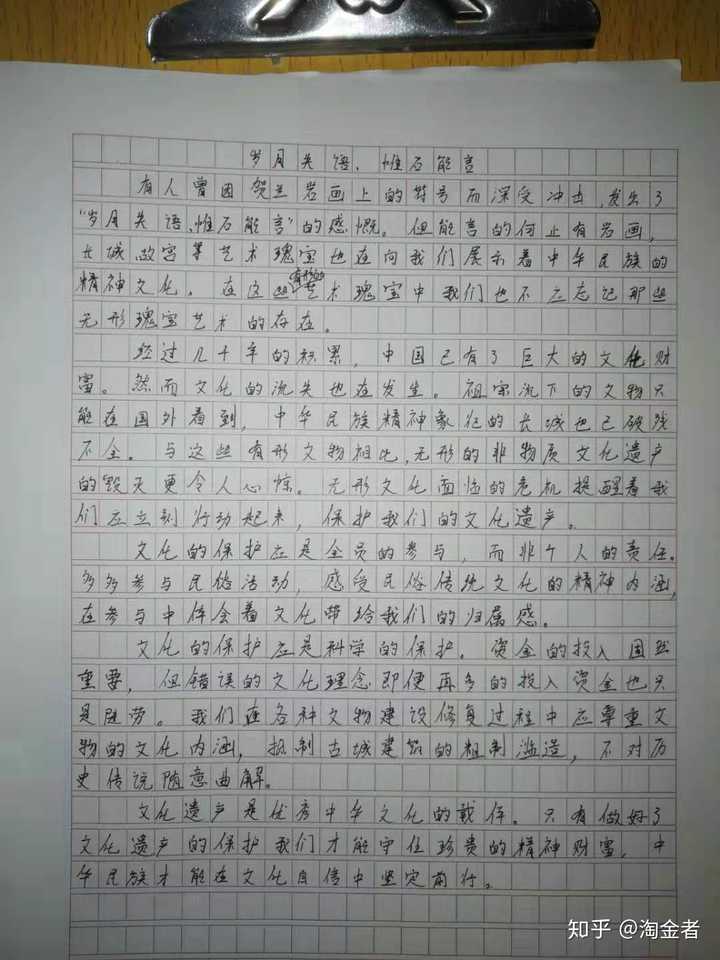 岁月失语,惟石能言
有人曾因贺兰岩画上的符号而深受冲击,发出了
“岁月失语,惟石能言”的感慨。但能言的何止有岩画,
长城,故宫等艺术瑰宝也在向我们展示着中华民族的
精神文化。在这些有形的艺术瑰宝中我们也不应忘记那些
无形瑰宝艺术的存在。
经过几千年的积累,中国已有了巨大的文化财
富。然而文化的流失也在发生。祖宗流下的文物只
能在国外看到,中华民族精神象征的长城也已破残
不全。与这些有形文物相比,无形的非物质文化遗产
的毁灭更令人心惊。无形文化面临的危机提醒着我
们应立刻行动起来,保护我们的文化遗产。
文化的保护应是全员的参与,而非个人的责任。
多多参与民俗活动,感受民俗传统文化的精神内涵,
在参与中体会着文化带给我们的归属感。
文化的保护应是科学的保护。资金的投入固然
重要,但错误的文化理念即便再多的投入资金也只
是徒劳。我们在各种文物建设修复过程中应尊重文
物的文化内涵,抵制古城建筑的粗制滥造,不对历
史传说随意曲解。
文化遗产是优秀中华文化的载体。只有做好了
文化遗产的保护我们才能守住珍贵的精神财富,中
华民族才能在文化自信中坚定前行。
知乎 @淘金者